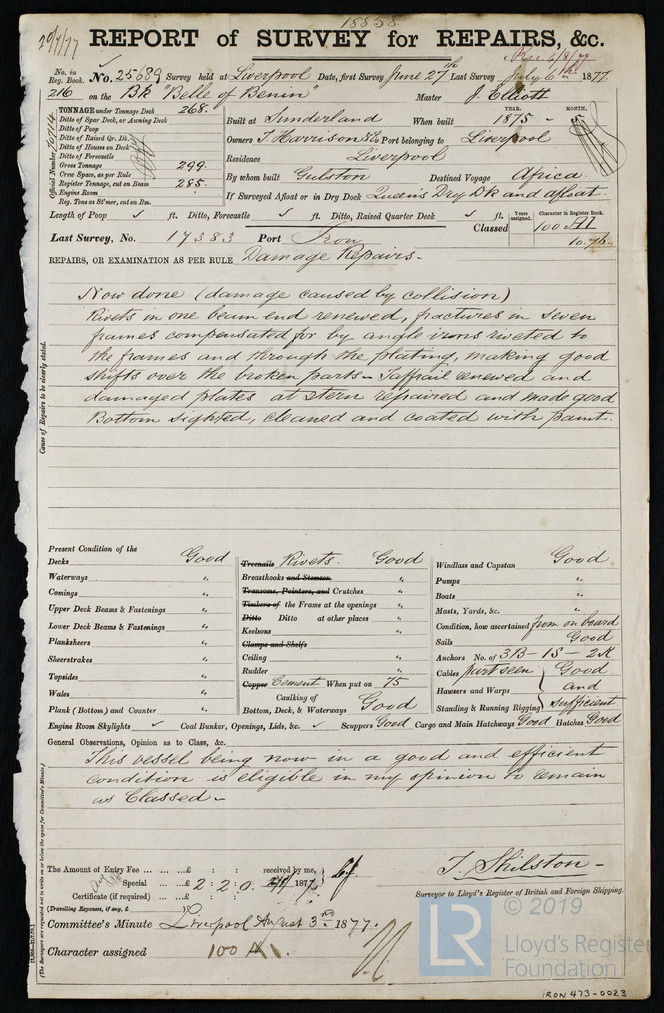 18838
20/7/77
REPORT of SURVEY for REPAIRS, &c.
Rec 6/8/77
No. in Reg. Book. No. 25689 Survey held at Liverpool Date, first Survey June 27th Last Survey July 6th 1877.
216 on the Bk "Belle of Benin" Master J. Elliott
TONNAGE under Tonnage Deck 268.
Ditto of Spar Deck, or Awning Deck
Ditto of Poop
Ditto of Raised Qr. Dk.
Ditto of Houses on Deck
Ditto of Forecastle
Gross Tonnage 299.
Crew Space, as per Rule
Register Tonnage, cut on Beam 285.
Engine Room
Reg. Tons as St'mer, cut on Bm.
Official Number 70714
YEAR. MONTH.
Built at Sunderland When built 1875 - 5
Owners T. Harrison &Co Port belonging to Liverpool
Residence Liverpool
By whom built Gulston Destined Voyage Africa.
If Surveyed Afloat or in Dry Dock Queen's Dry Dk and afloat.
Length of Poop ✓ ft. Ditto, Forecastle ✓ ft. Ditto, Raised Quarter Deck ✓ ft.
Classed Years assigned. Character in Register Book.
100 A1
10.76
Last Survey, No. 17383 Port Iron
REPAIRS, OR EXAMINATION AS PER RULE Damage Repairs.
Cause of Repairs to be clearly stated.
Now done (damage caused by collision)
Rivets in one beam end renewed, fractures in seven
frames compensated for by angle irons riveted to
the frames and through the plating, making good
shifts over the broken parts - Taffrail renewed and
damaged plates at stern repaired and made good
Bottom sighted, cleaned and coated with paint.
Present Condition of the
Decks Good
Waterways "
Comings "
Upper Deck Beams & Fastenings "
Lower Deck Beams & Fastenings "
Planksheers "
Sheerstrakes "
Topsides "
Wales "
Plank (Bottom) and Counter "
Engine Room Skylights ✓ Coal Bunker, Openings, Lids, &c. ✓ Scuppers Good Cargo and Main Hatchways Good Hatches Good
Treenails Rivets. Good
Breasthooks and Stemson "
Transoms, Pointers, and Crutches "
Timbers of the Frame at the openings "
Ditto Ditto at other places "
Keelsons "
Clamps and Shelfs
Ceiling "
Rudder "
Copper Cement When put on 75
Caulking of
Bottom, Deck, & Waterways Good
Windlass and Capstan Good
Pumps "
Boats "
Masts, Yards, &c. "
Condition, how ascertained from on board
Sails Good
Anchors No. of 3B - 1S - 2K
Cables part seen Good
Hawsers and Warps and
Standing & Running Rigging sufficient
General Observations, Opinion as to Class, &c.
This vessel being now in a good and efficient
condition is eligible in my opinion to remain
as Classed -
The Amount of Entry Fee ... ... ...£ : : received by me,
Special ... ...£ 2 : 2 : 0 187
Certificate (if required) ... ...£ : :
(Travelling Expenses, if any, £
T. Skilston -
Surveyor to Lloyd's Register of British and Foreign Shipping.
Committee's Minute Liverpool August 3rd 1877.
Character assigned 100 A1.
(The Surveyors are requested not to write on or below the space for Committee's Minute.)
© 2019
LR
Lloyd's Register
Foundation
IRON 473-0023